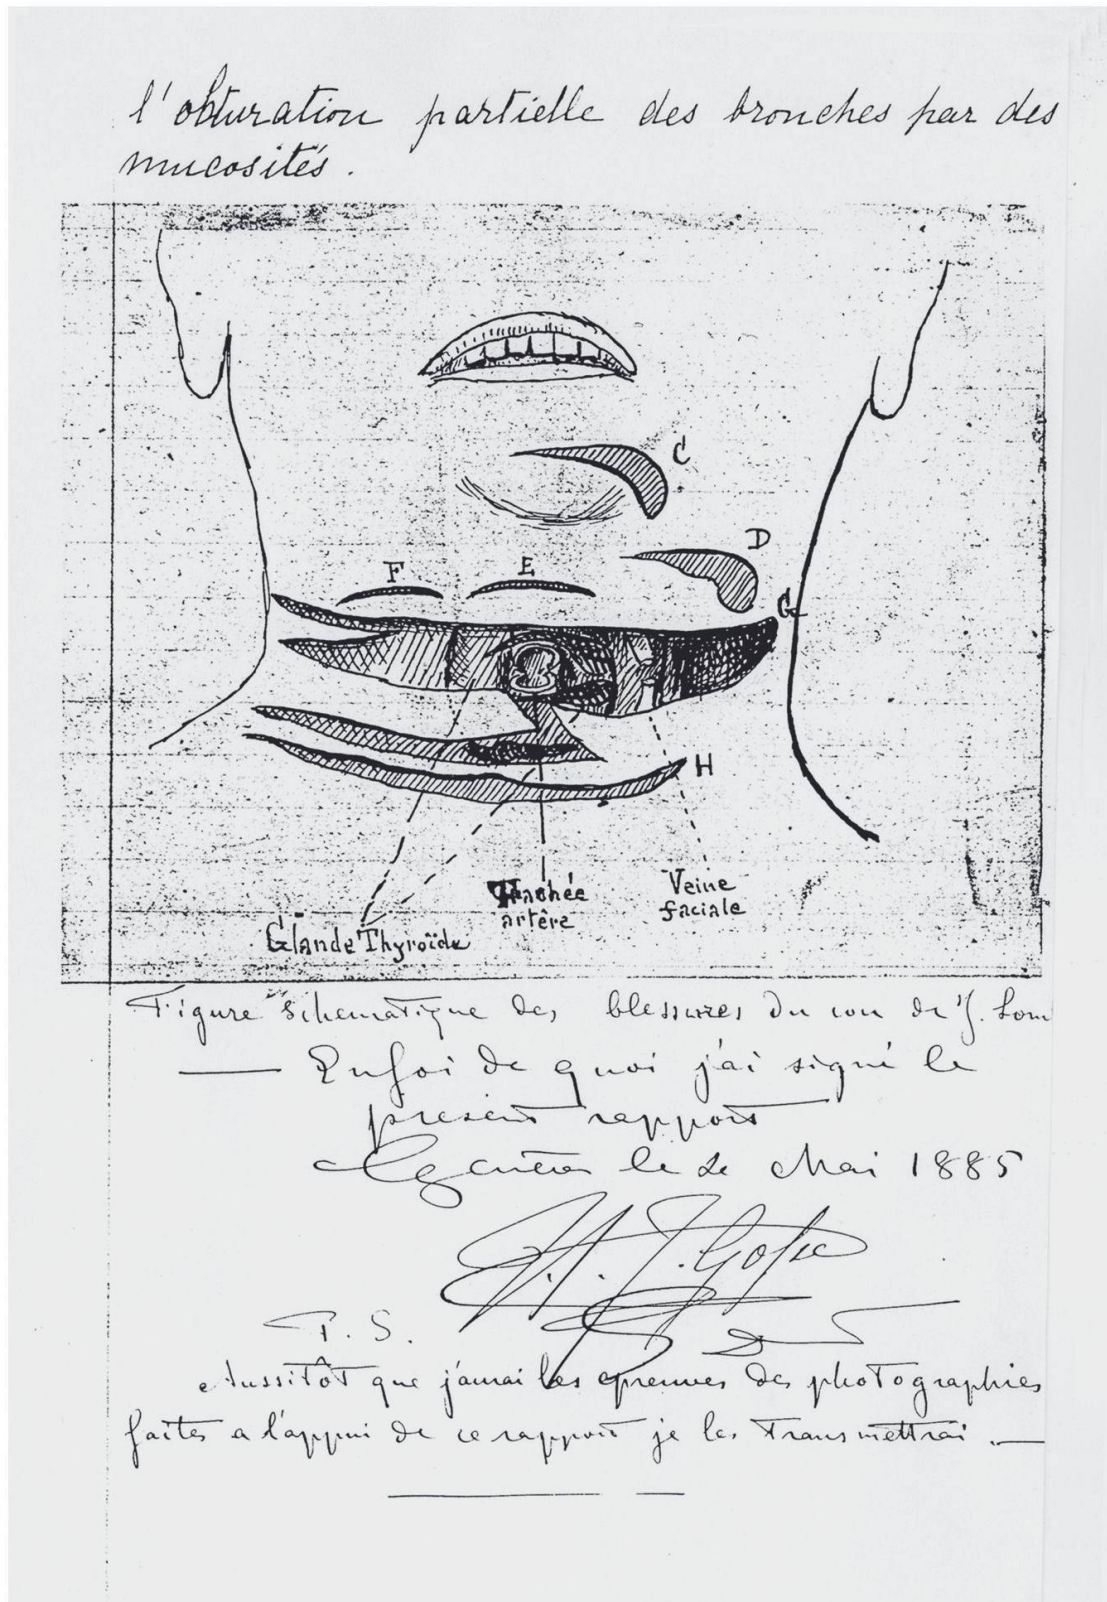 l'obturation partielle des bronches par des
mucosités.
C
D
F E
G
H
Trachée
artère
Veine
faciale
Glande Thyroïde
Figure schematique des blessures du cou de J. Lom
— Enfoi de quoi j'ai signé le
present rapport
Genève le 2 Mai 1885
H. J. Gosse
P. S.
Aussitôt que j'aurai les épreuves des photographies
faites a l'appui de ce rapport je les transmettrai. —